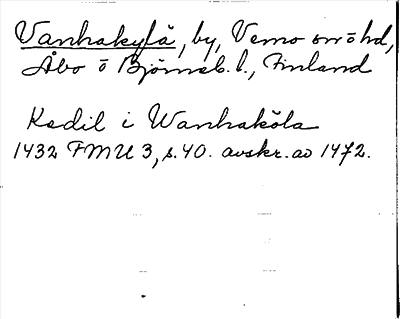 Vanhakylä, by, Vemo sn o hd,
Åbo o Björneb. l., Finland
Kedil i Wanhaköla
1432 FMU 3, s. 40. avskr. av 1472.